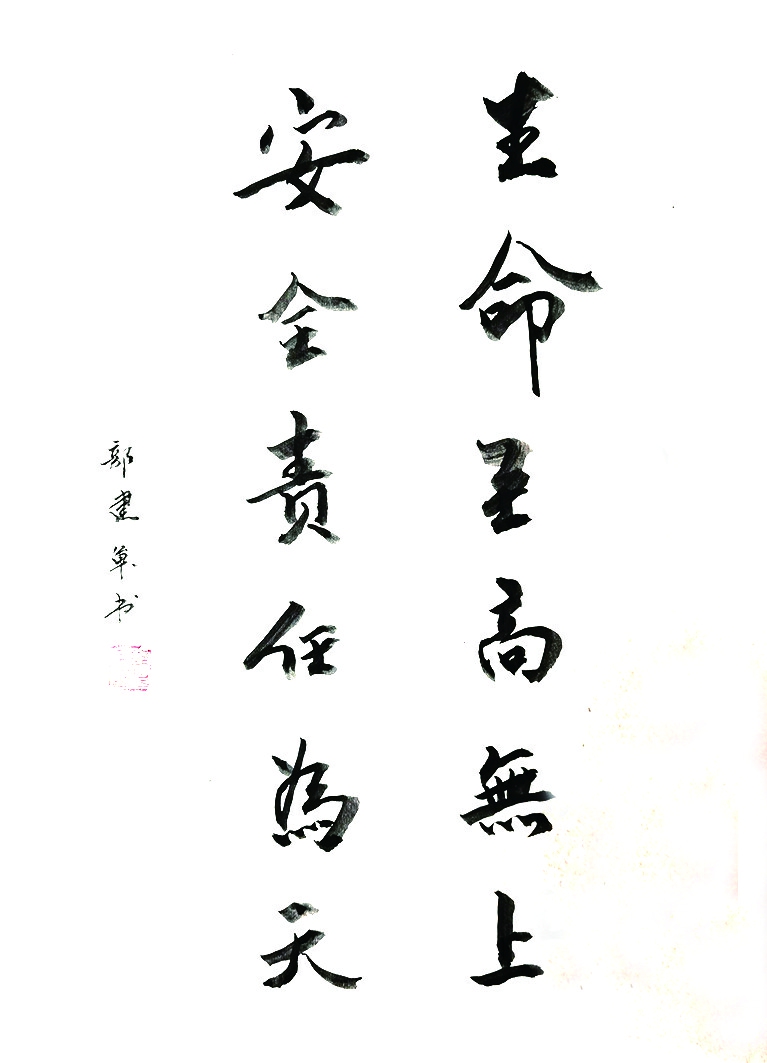 生命至高無上
安全責任為天
建军书